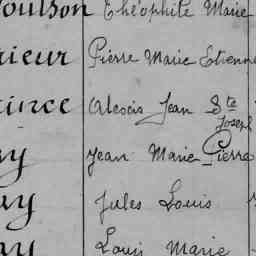 oulson Théophile Marie
rieur Pierre Marie Etienne
ince Alexis Jean Ste Joseph
ay Jean Marie Pierre
ay Jules Louis
ay Louis Marie